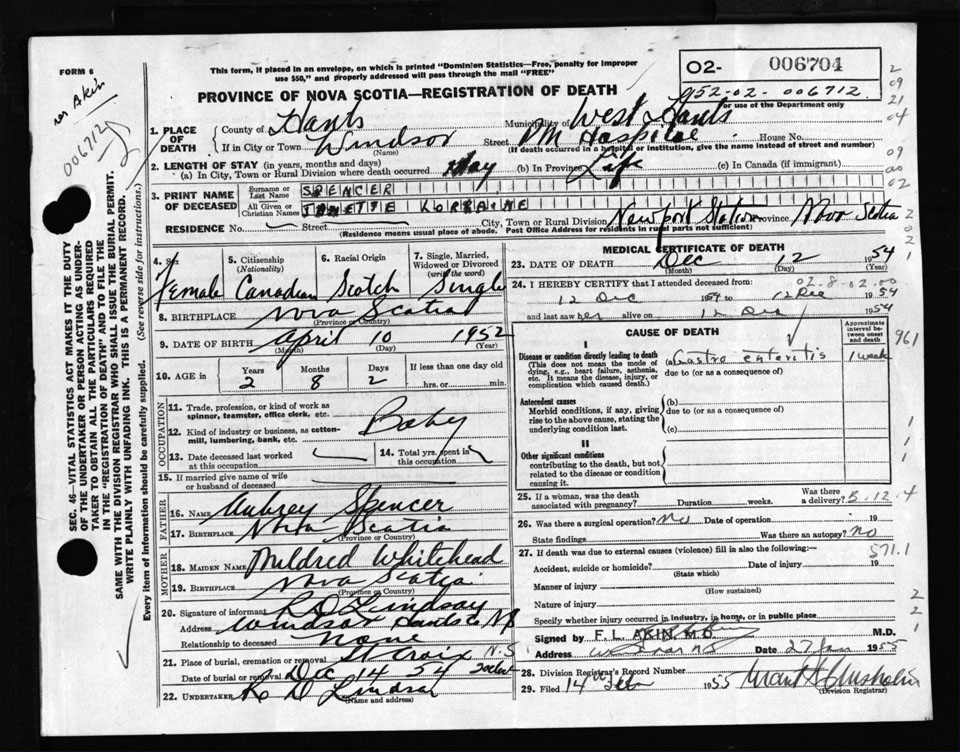 FORM 6
This form, if placed in an envelope, on which is printed "Dominion Statistics—Free, penalty for improper
use $50," and properly addressed will pass through the mail "FREE"
PROVINCE OF NOVA SCOTIA—REGISTRATION OF DEATH
02- 006704
952-02-006712
For use of the Department only
Akin
006712
1. PLACE OF DEATH
County of Hants Municipality of West Hants
If in City or Town Windsor Street PM Hospital House No.
(Name) (If death occurred in a hospital or institution, give the name instead of street and number)
2. LENGTH OF STAY (in years, months and days)
(a) In City, Town or Rural Division where death occurred day (b) In Province Life (c) In Canada (if immigrant)
3. PRINT NAME OF DECEASED
Surname or Last Name SPENCER
All Given or Christian Names JANETTE LORRAINE
RESIDENCE No. Street City, Town or Rural Division Newport Station Province Nova Scotia
(Residence means usual place of abode. Post Office Address for residents in rural parts not sufficient)
4. Sex 5. Citizenship (Nationality) 6. Racial Origin 7. Single, Married, Widowed or Divorced (write the word)
Female Canadian Scotch Single
8. BIRTHPLACE Nova Scotia
(Province or Country)
9. DATE OF BIRTH April 10 1952
(Month) (Day) (Year)
10. AGE in Years Months Days If less than one day old
2 8 2 hrs. or min.
OCCUPATION
11. Trade, profession, or kind of work as spinner, teamster, office clerk, etc.
Baby
12. Kind of industry or business, as cotton-mill, lumbering, bank, etc.
13. Date deceased last worked at this occupation
14. Total yrs. spent in this occupation
15. If married give name of wife or husband of deceased
FATHER
16. Name Aubrey Spencer
17. Birthplace Nova Scotia
(Province or Country)
MOTHER
18. MAIDEN NAME Mildred Whitehead
19. BIRTHPLACE Nova Scotia
(Province or Country)
20. Signature of informant R D Lindsay
Address Windsor Hants Co NS
Relationship to deceased none
21. Place of burial, cremation or removal St Croix N.S.
Date of burial or removal Dec 14 54
22. UNDERTAKER R D Lindsay
(Name and address)
MEDICAL CERTIFICATE OF DEATH
23. DATE OF DEATH Dec 12 1954
(Month) (Day) (Year)
24. I HEREBY CERTIFY that I attended deceased from:
02.8-02.00
12 Dec 1954 to 12 Dec 1954
and last saw her alive on 12 Dec 1954
CAUSE OF DEATH
Approximate interval between onset and death
I
Disease or condition directly leading to death (a) Gastro enteritis 1 week
(This does not mean the mode of dying, e.g., heart failure, asthenia, etc. It means the disease, injury, or complication which caused death.)
due to (or as a consequence of)
Antecedent causes
Morbid conditions, if any, giving rise to the above cause, stating the underlying condition last.
(b)
due to (or as a consequence of)
(c)
II
Other significant conditions
contributing to the death, but not related to the disease or condition causing it.
25. If a woman, was the death associated with pregnancy? Duration weeks. Was there a delivery? 5.12.4
26. Was there a surgical operation? No Date of operation 19
State findings Was there an autopsy? No
27. If death was due to external causes (violence) fill in also the following:—
571.1
Accident, suicide or homicide? Date of injury 19
(State which)
Manner of injury
(How sustained)
Nature of injury
Specify whether injury occurred in industry, in home, or in public place
Signed by F. L. AKIN, M.D. M.D.
Address Windsor NS Date 27 Jan 1955
28. Division Registrar's Record Number
29. Filed 14 1955
(Division Registrar)
SEC. 46—VITAL STATISTICS ACT MAKES IT THE DUTY
OF THE UNDERTAKER OR PERSON ACTING AS UNDER-
TAKER TO OBTAIN ALL THE PARTICULARS REQUIRED
IN THE "REGISTRATION OF DEATH" AND TO FILE THE
SAME WITH THE DIVISION REGISTRAR WHO SHALL ISSUE THE BURIAL PERMIT.
WRITE PLAINLY WITH UNFADING INK. THIS IS A PERMANENT RECORD.
Every item of information should be carefully supplied. (See reverse side for instructions.)
2
09
21
04
09
00
02
2
02
1
961
1
1
1
2
2
1